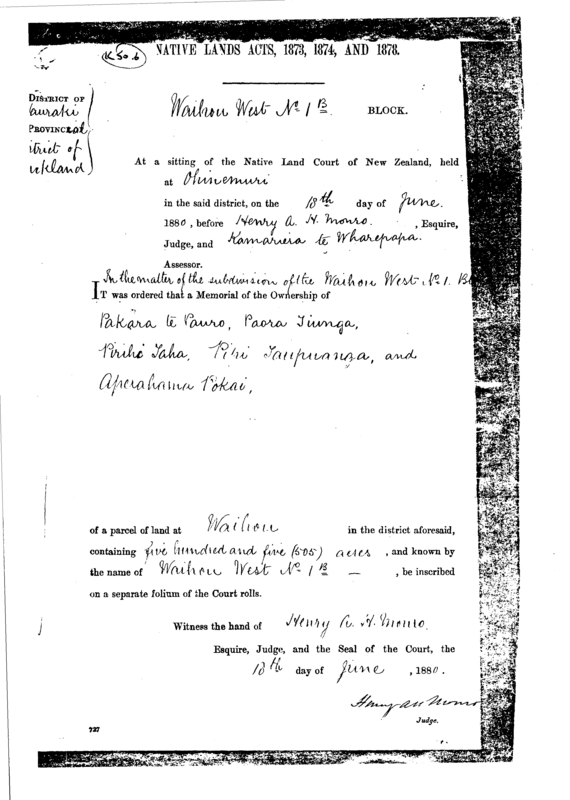 K 50.6
NATIVE LANDS ACTS, 1873, 1874, AND 1878.
DISTRICT OF
auraki
PROVINCIAL
itrict of
uckland
Waihou West No 1 B BLOCK.
At a sitting of the Native Land Court of New Zealand, held
at Ohinemuri
in the said district, on the 18th day of June.
1880, before Henry A. H. Monro. , Esquire,
Judge, and Kamariera te Wharepapa.
Assessor.
In the matter of the subdivision of the Waihou West No 1. B
IT was ordered that a Memorial of the Ownership of
Pakara te Pauro, Paora Tiunga,
Pirihi Taha, Pihi Taupuanga, and
Aperahama Pokai,
of a parcel of land at Waihou in the district aforesaid,
containing five hundred and five (505) acres , and known by
the name of Waihou West No 1 B — , be inscribed
on a separate folium of the Court rolls.
Witness the hand of Henry A. H. Monro.
Esquire, Judge, and the Seal of the Court, the
18th day of June , 1880.
Henry A H Monro
Judge.
727